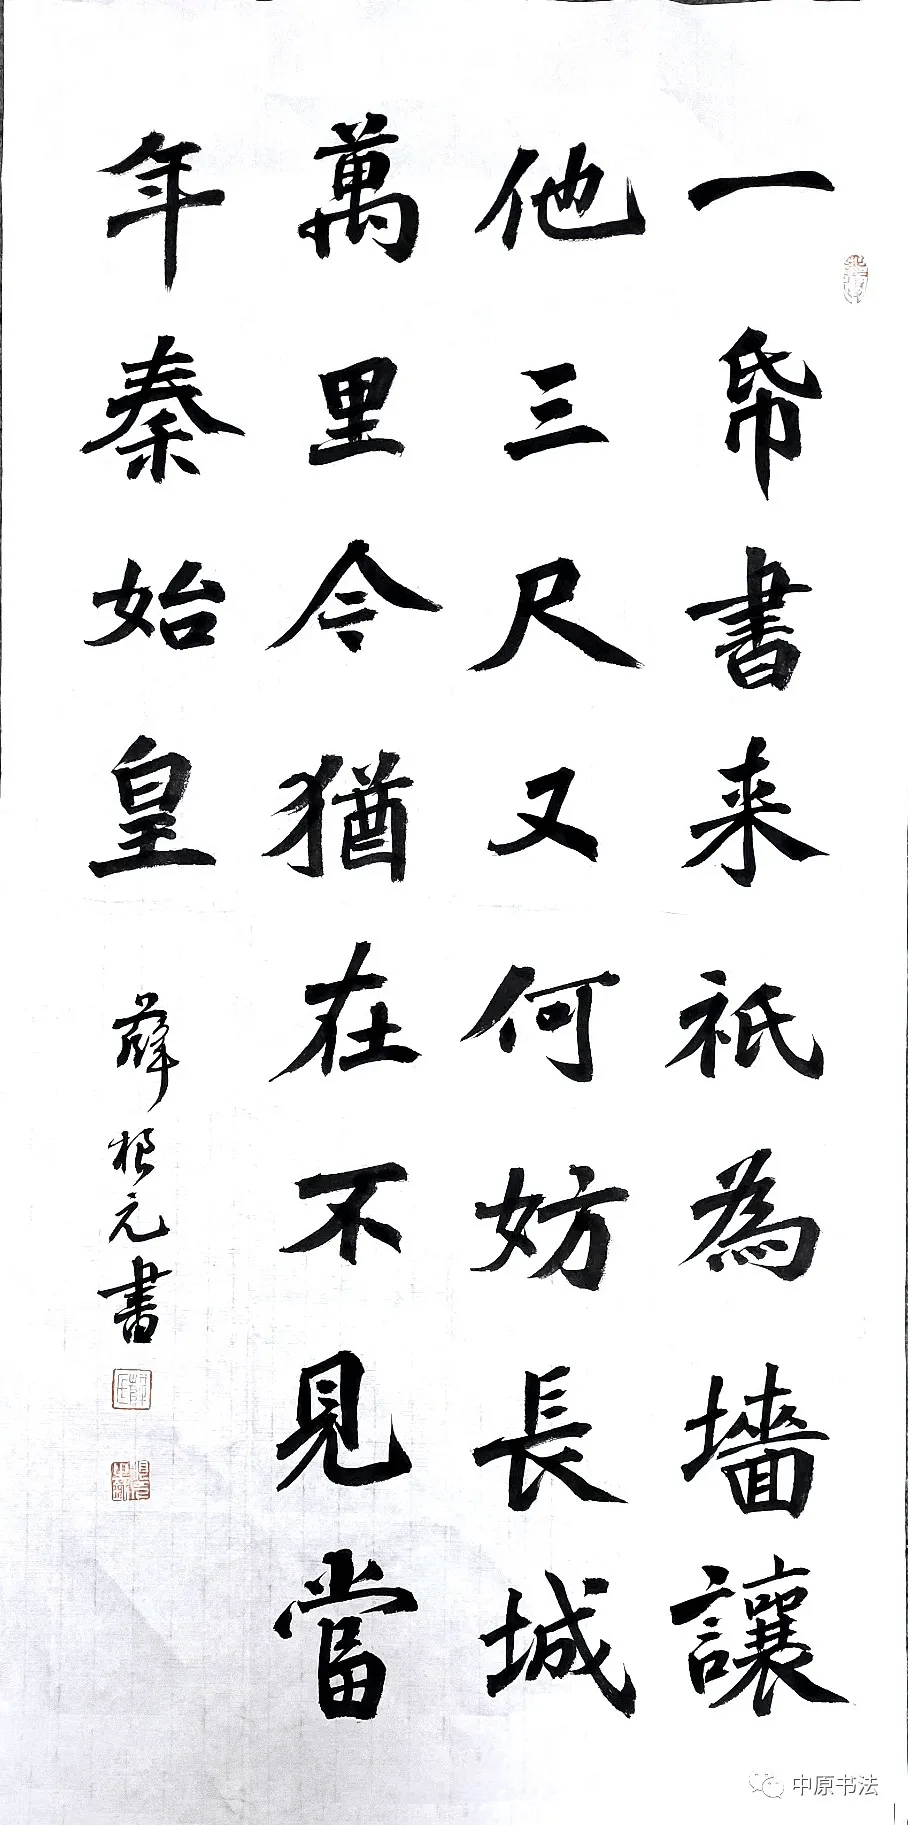 一帋書来祇為墻讓
他三尺又何妨長城
萬里今猶在不見當
年秦始皇
薛根元書
中原书法